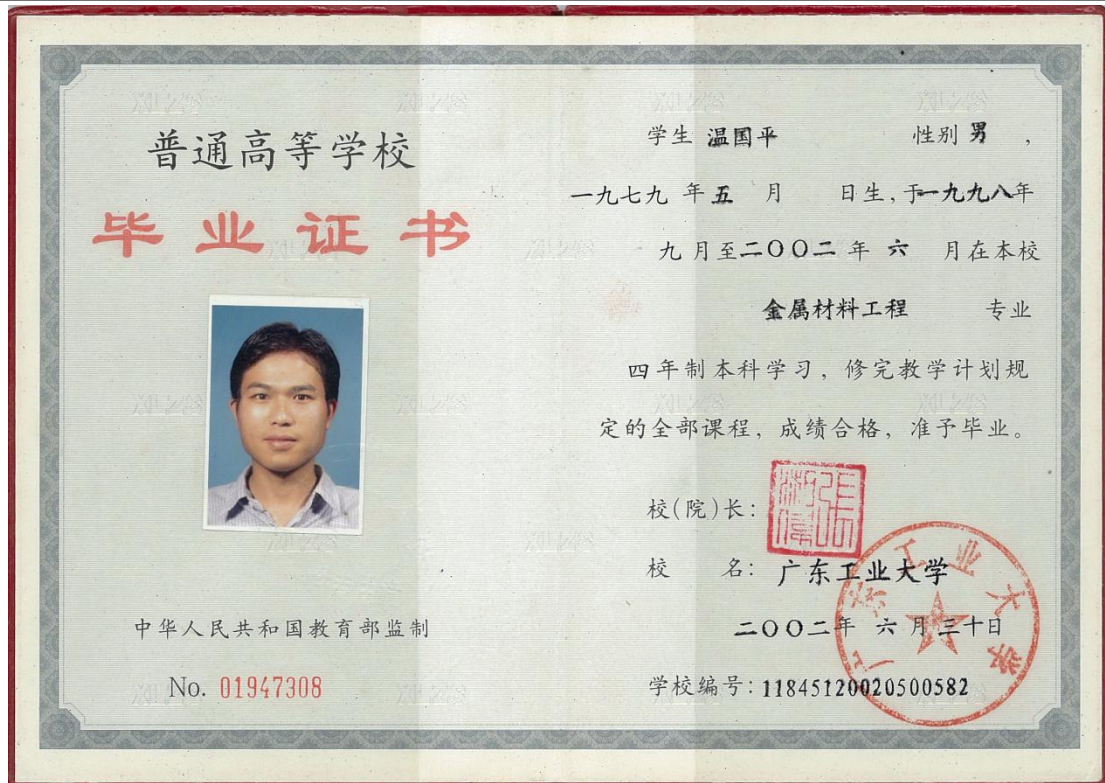 普通高等学校
毕业证书
中华人民共和国教育部监制
No. 01947308
学生 温国平 性别 男 ,
一九七九 年 五 月 日生, 于一九九八年
九月至二〇〇二 年 六 月在本校
金属材料工程 专业
四年制本科学习, 修完教学计划规
定的全部课程, 成绩合格, 准予毕业。
校(院)长:
校 名: 广东工业大学
二〇〇二年 六 月三十日
学校编号: 118451200205000582
广东工业大学